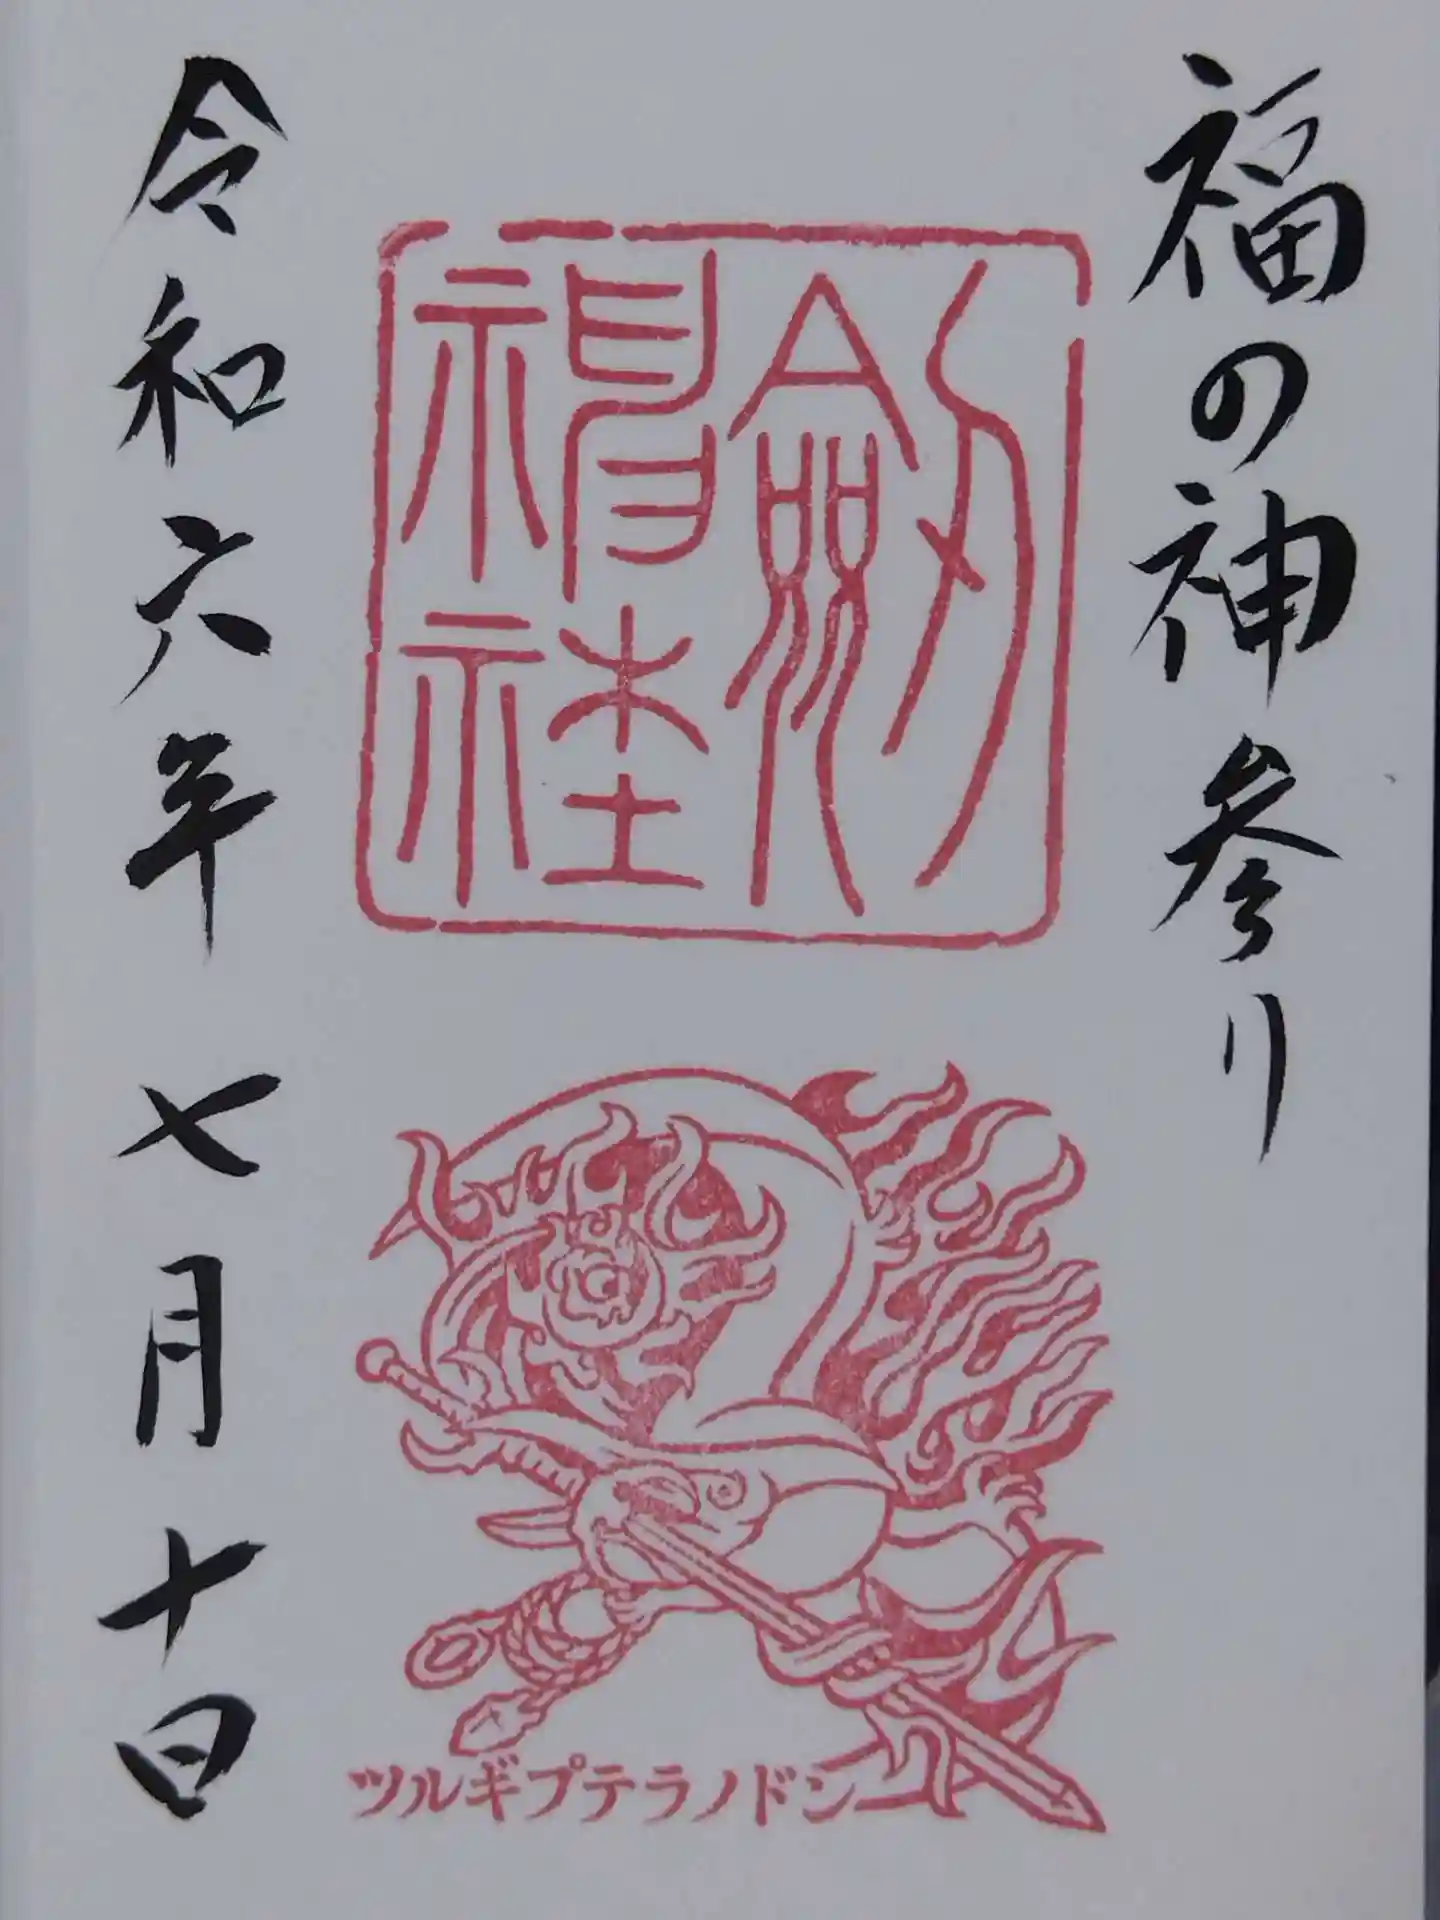 福の神参り
劔神社
令和六年七月十日
ツルギプテラノドン